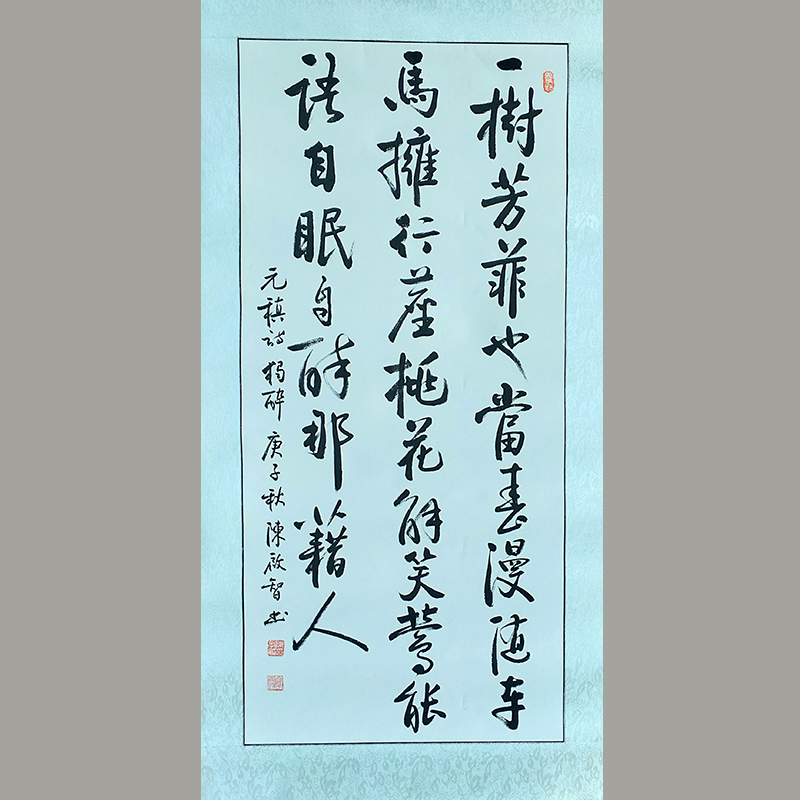 一樹芳菲也當春漫随车
馬擁行塵桃花解笑鶯能
語自眠自醉那籍人
元稹诗獨醉庚子秋陳啟智书